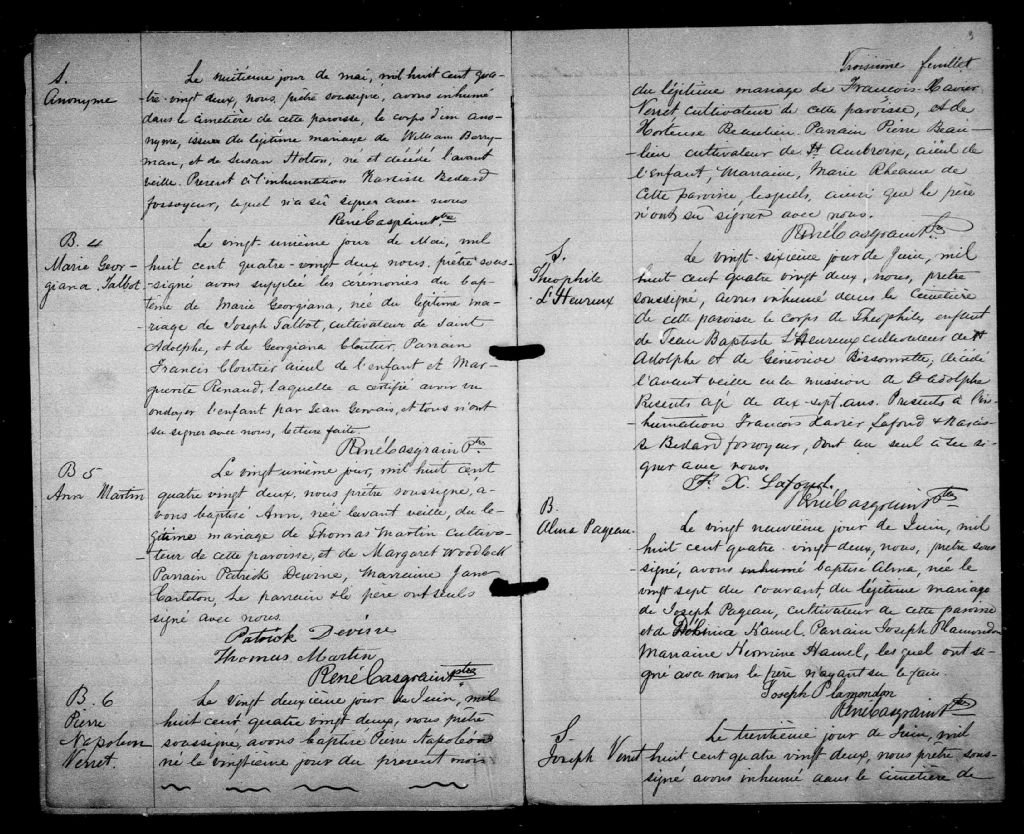 S.
Anonyme
Le huitième jour de mai, mil huit cent qua-
tre-vingt deux, nous, prêtre soussigné, avons inhumé
dans le cimetière de cette paroisse, le corps d'un ano-
nyme, issu du légitime mariage de William Berry-
man, et de Susan Holton, né et décédé l'avant
veille. Present à l'inhumation Narcisse Bedard
fossoyeur, lequel n'a su signer avec nous
René Casgrain Ptre
B. 4
Marie Geor-
giana Talbot.
Le vingt-unième jour de Mai, mil
huit cent quatre-vingt deux nous, prêtre sous-
-signé avons supplée les cérémonies du bap-
tême de Marie Georgiana, née du légitime ma-
riage de Joseph Talbot, cultivateur de Saint
Adolphe, et de Georgiana Cloutier, Parrain
Francis Cloutier aieul de l'enfant et Mar-
guerite Renaud, laquelle a certifié avoir vu
ondoyer l'enfant par Jean Gervais, et tous n'ont
su signer avec nous, lecture faite.
René Casgrain Ptre
B 5
Ann Martin
Le vingt-unième jour, mil huit cent
quatre vingt deux, nous prêtre soussigné, a-
vons baptisé Ann, née l'avant veille, du lé-
gitime mariage de Thomas Martin cultiva-
teur de cette paroisse, et de Margaret Woodlock
Parrain Patrick Devine, Marraine Jane
Carleton, Le parrain & le père ont seuls
signé avec nous.
Patrick Devine
Thomas Martin
René Casgrain Ptre
B. 6
Pierre
Napoleon
Verret.
Le vingt deuxième jour de Juin, mil
huit cent quatre vingt deux, nous prêtre
soussigné, avons baptisé Pierre Napoléon
né le vingtième jour du present mois
3
Troisième feuillet
du légitime mariage de François-Xavier
Verret cultivateur de cette paroisse, et de
Hortense Beaulieu. Parrain Pierre Beau-
-lieu cultivateur de St Ambroise, aïeul de
l'enfant, Marraine, Marie Rheaume de
cette paroisse, lesquels, ainsi que le père
n'ont su signer avec nous.
René Casgrain Ptre
S.
Théophile
L'Heureux
Le vingt-sixième jour de Juin, mil
huit cent quatre vingt deux, nous, prêtre
soussigné, avons inhumé dans le Cimetière
de cette paroisse le corps de Théophile, enfant
de Jean Baptiste L'Heureux cultivateur de St
Adolphe et de Géneviève Bissonnette, décédé
l'avant veille en la mission de St Adolphe
agé de dix-sept ans. Presents à l'in-
humation Francois Xavier Lafond & Narcis-
se Bedard fossoyeur, dont un seul a su si-
gner avec nous.
F. X. Lafond
René Casgrain Ptre
B.
Alma Pageau.
Le vingt neuvième jour de Juin, mil
huit cent quatre-vingt deux, nous, prêtre sous
signé, avons inhumé baptisé Alma, née le
vingt sept du courant, du légitime mariage
de Joseph Pageau, cultivateur de cette paroisse
et de Hamel Parrain Joseph Plamondon
Marraine Hermine Hamel, lesquel ont si-
gné avec nous le père n'ayant su le faire.
Joseph Plamondon
René Casgrain Ptre
S
Joseph Verret
Le trentième jour de Juin, mil
huit cent quatre vingt deux, nous prêtre sous-
signé avons inhumé dans le cimetière de